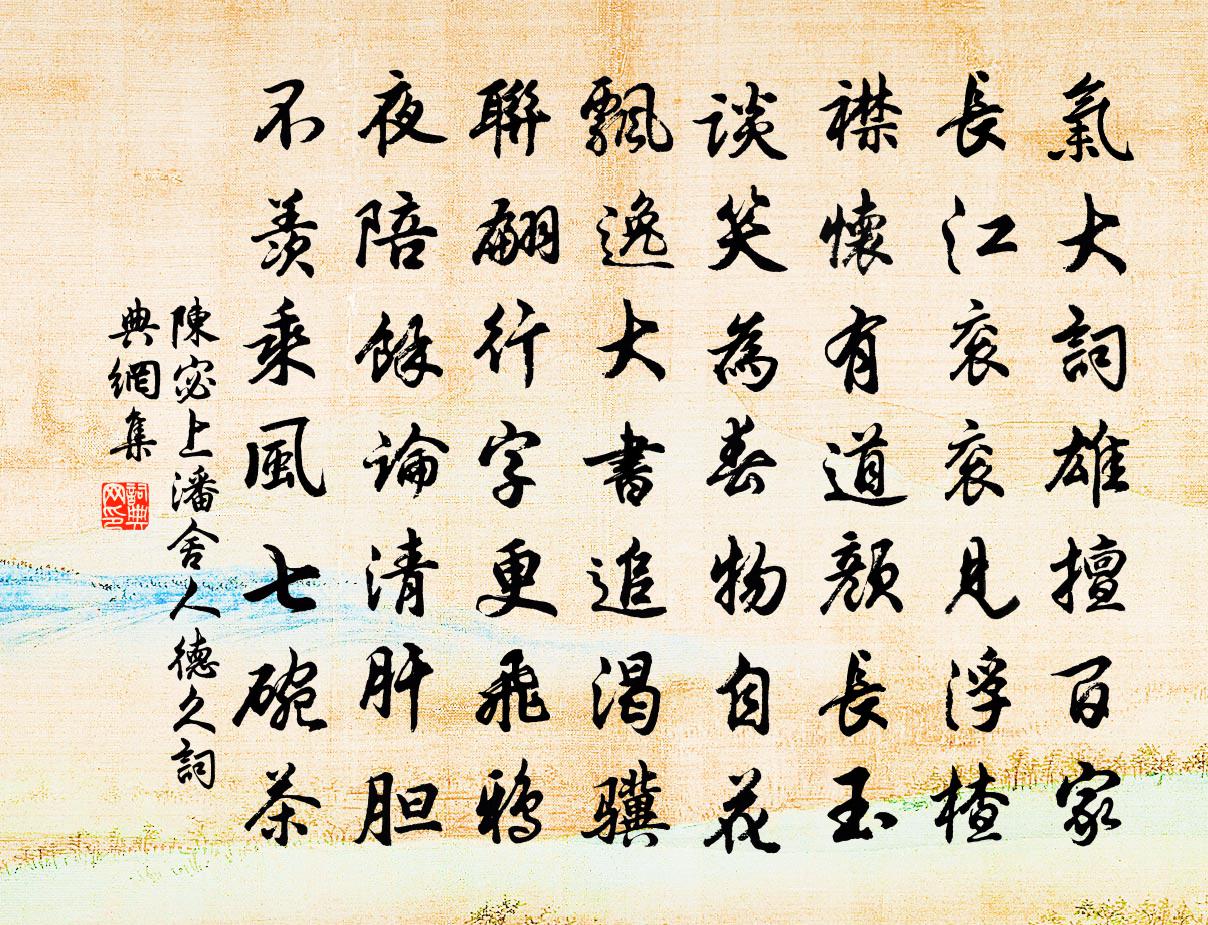 氣大詞雄擅百家
長江衮衮見浮楂
襟懷有道顏長玉
谈笑為春物自花
飄逸大書追渴驥
聯翩行字更飛鴉
夜陪餘論清肝胆
不羨乘風七碗茶
陳宓上潘舍人德久詞
典網集
詞典网印